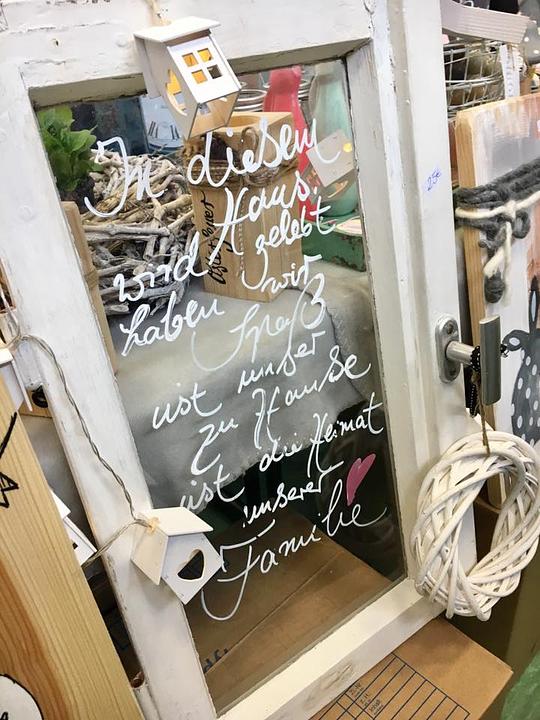 In diesem
Haus.
wird gelebt
haben wir
Spaß
ist unser
zu Hause
ist die Heimat
unserer
Familie
25€